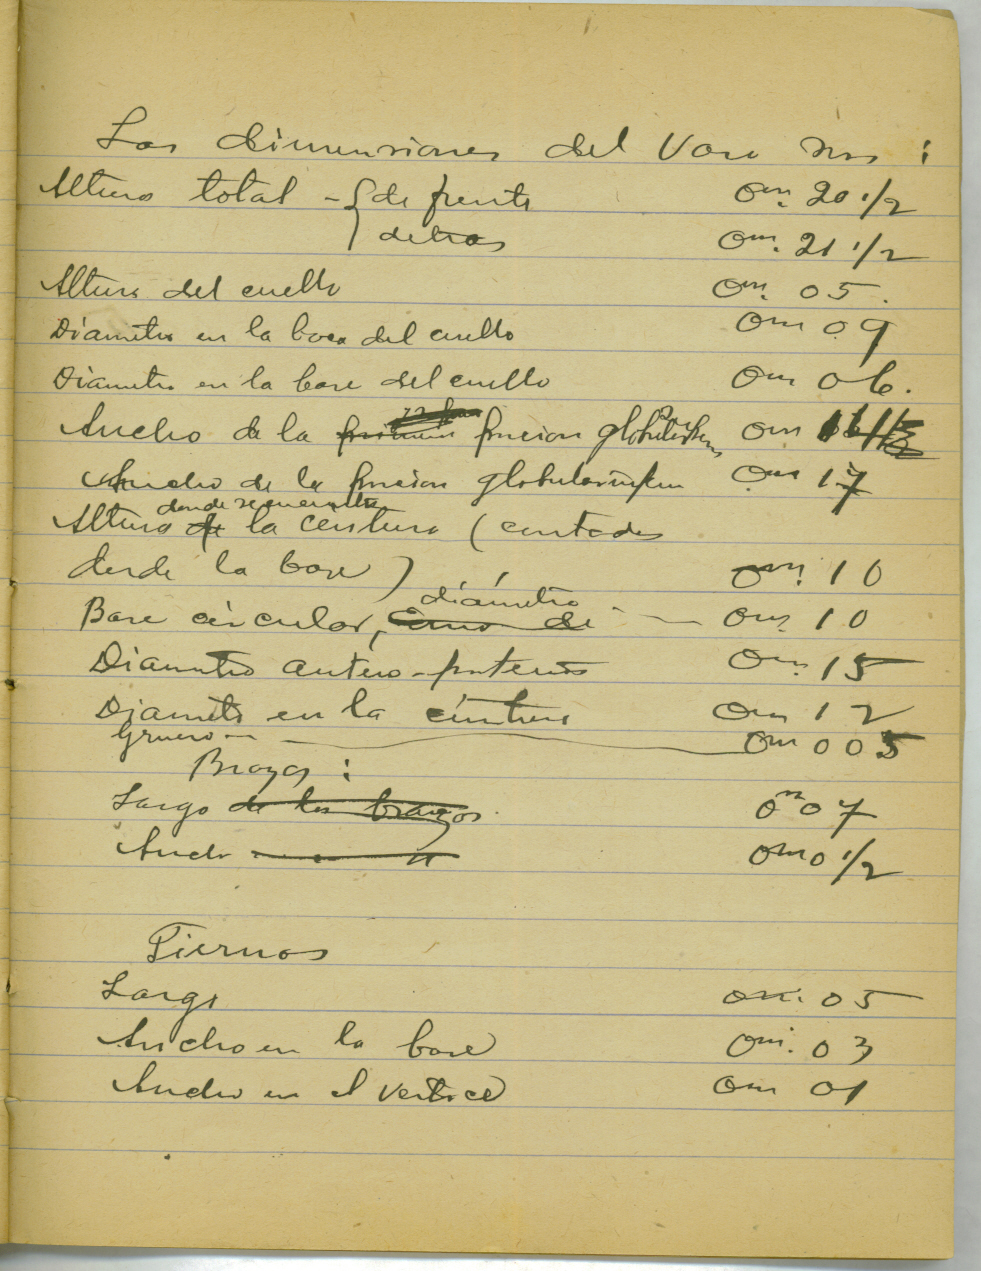 Las dimensiones del Vaso son :
Altura total - { de frente 0m. 20 1/2
{ detras 0m. 21 1/2
Altura del cuello 0m. 05.
Diametro en la boca del cuello 0m 09
Diametro en la base del cuello 0m 06.
Ancho de la porcion 0m
Ancho de la porcion globular 0m 17
donde se encuentra
Altura de la centura (contada
desde la base) 0m. 10
diámetro
Base circular, 0m. 10
Diametro antero-posterior 0m. 15
Diametro en la cintura 0m 12
Grueso - 0m 005
Brazos :
Largo de los brazos 0m 07
Ancho 0m 0 1/2
Piernas
Largo 0m. 05
Ancho en la base 0m. 03
Ancho en el vertice 0m 01